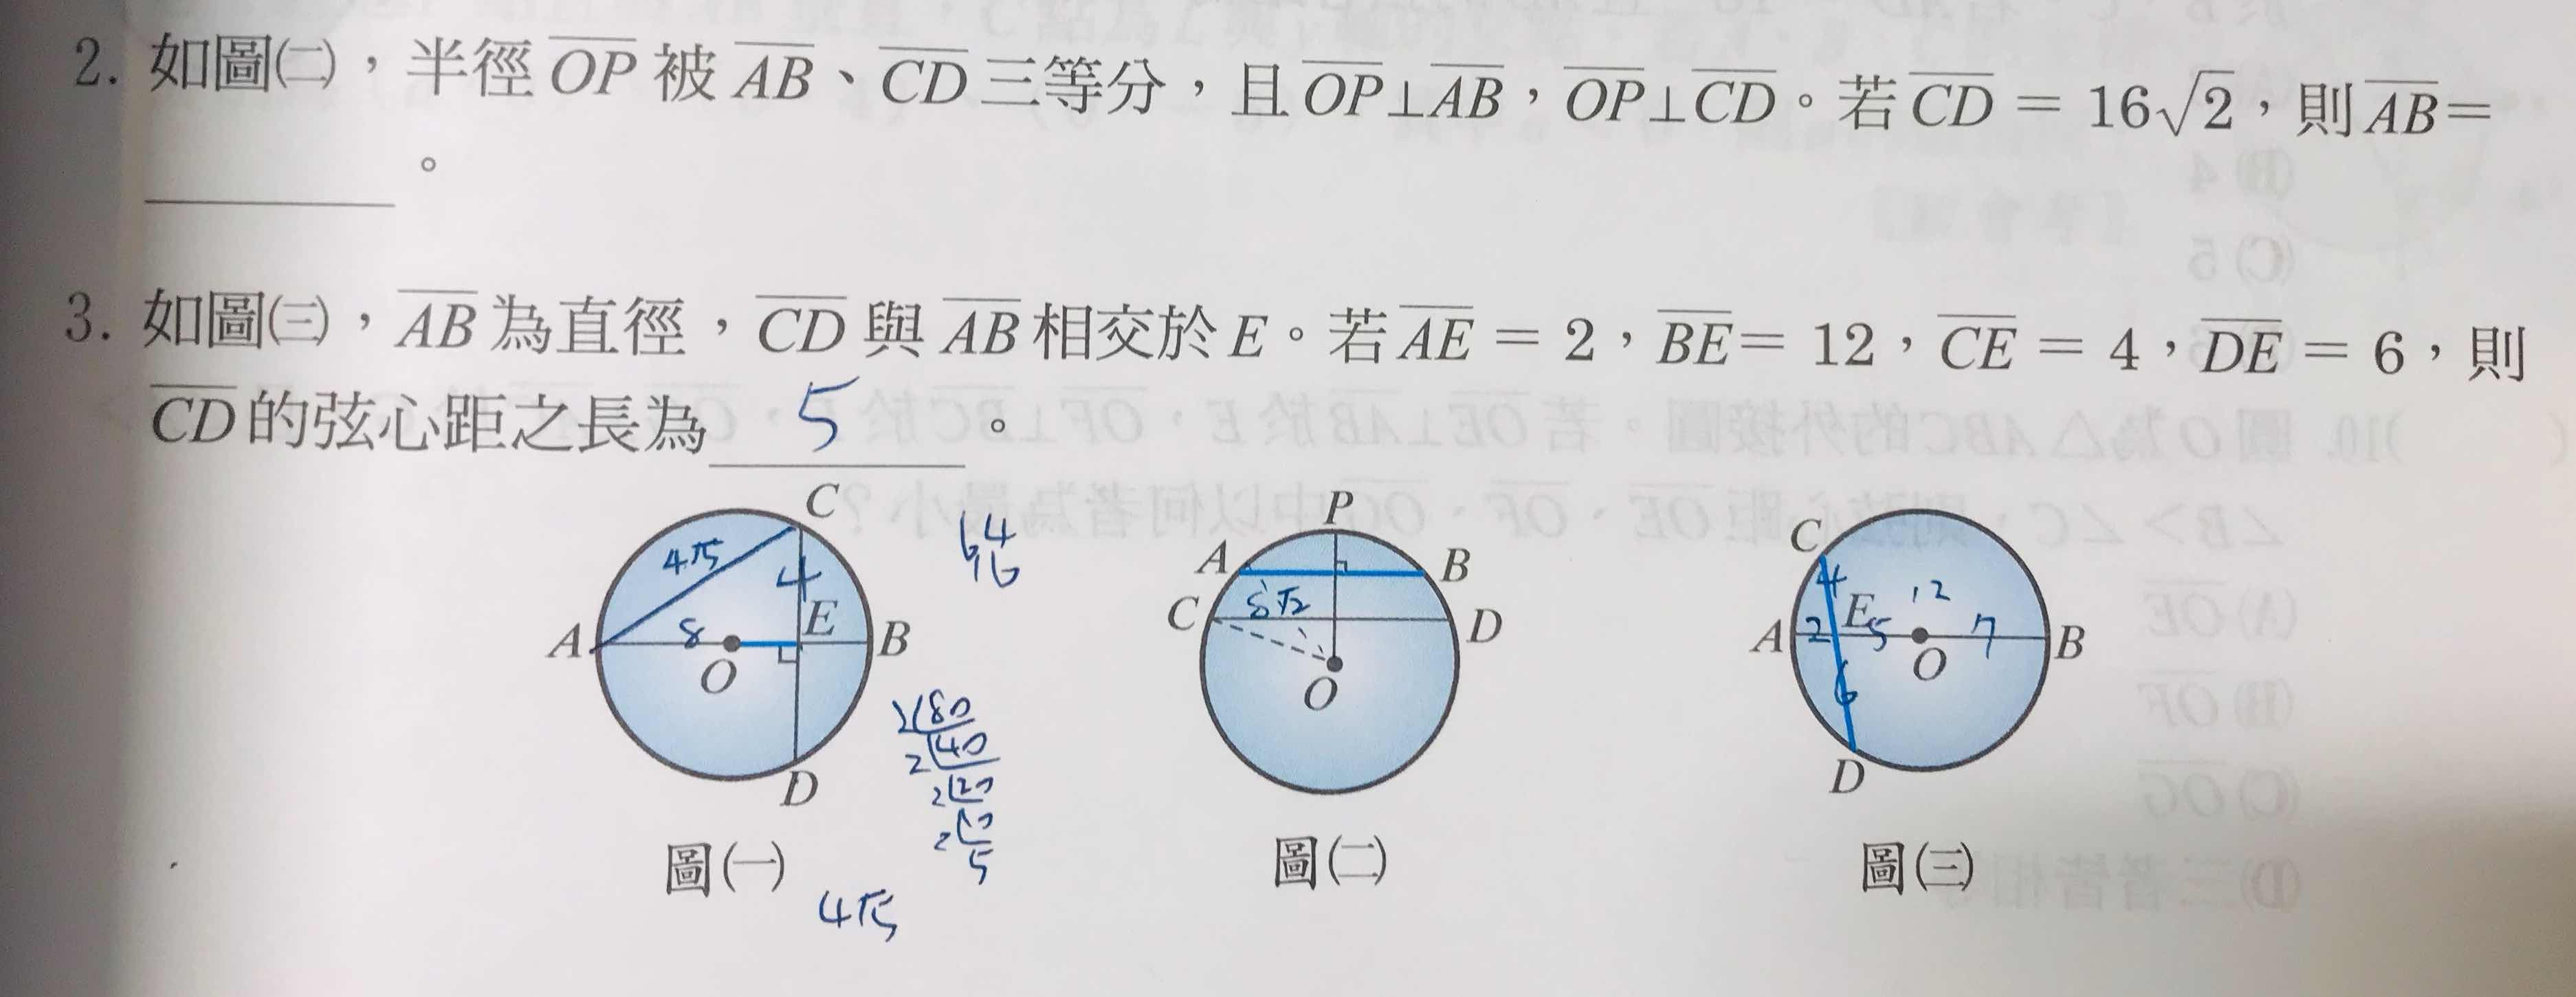 2. 如圖㈡，半徑OP被AB、CD三等分，且OP⊥AB，OP⊥CD。若CD = 16√2，則AB=
。
3. 如圖㈢，AB為直徑，CD與AB相交於E。若AE = 2，BE= 12，CE = 4，DE = 6，則
CD的弦心距之長為 5 。
C
4√5
4
8
A
E
B
O
D
64
16
2 80
2 40
2 20
2 10
5
圖㈠
4√5
P
A
B
8√2
C
D
O
圖㈡
C
4
12
A
2
E
5
7
B
O
6
D
圖㈢